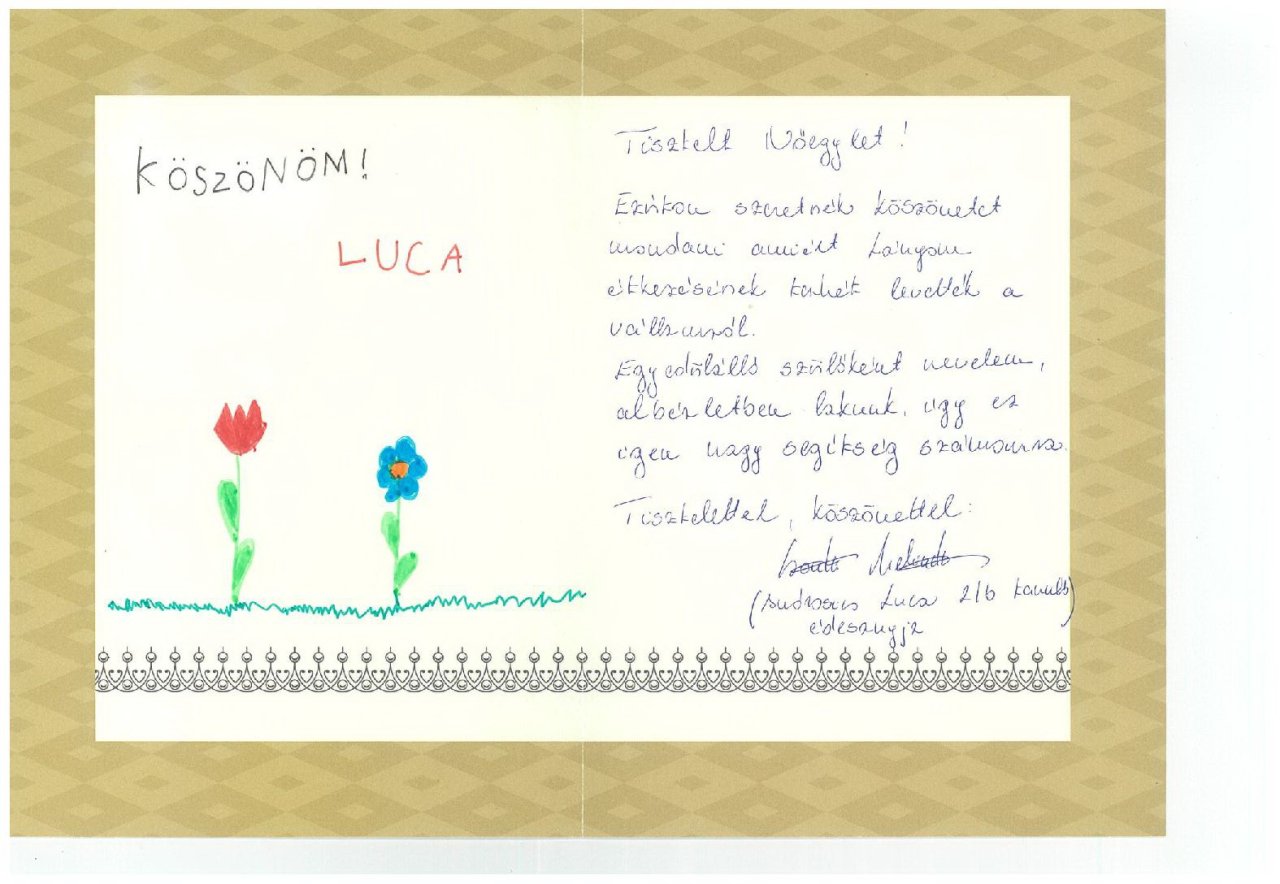 KÖSZÖNÖM!
LUCA
Tisztelt Nőegylet!
Ezúton szeretnék köszönetet
mondani amiért lányom
étkezésének terhét levették a
vállamról.
Egyedülálló szülőként nevelem,
albérletben lakunk, úgy ez
igen nagy segítség számomra.
Tisztelettel, köszönettel:
Luca 2/b tanuló
édesanyja